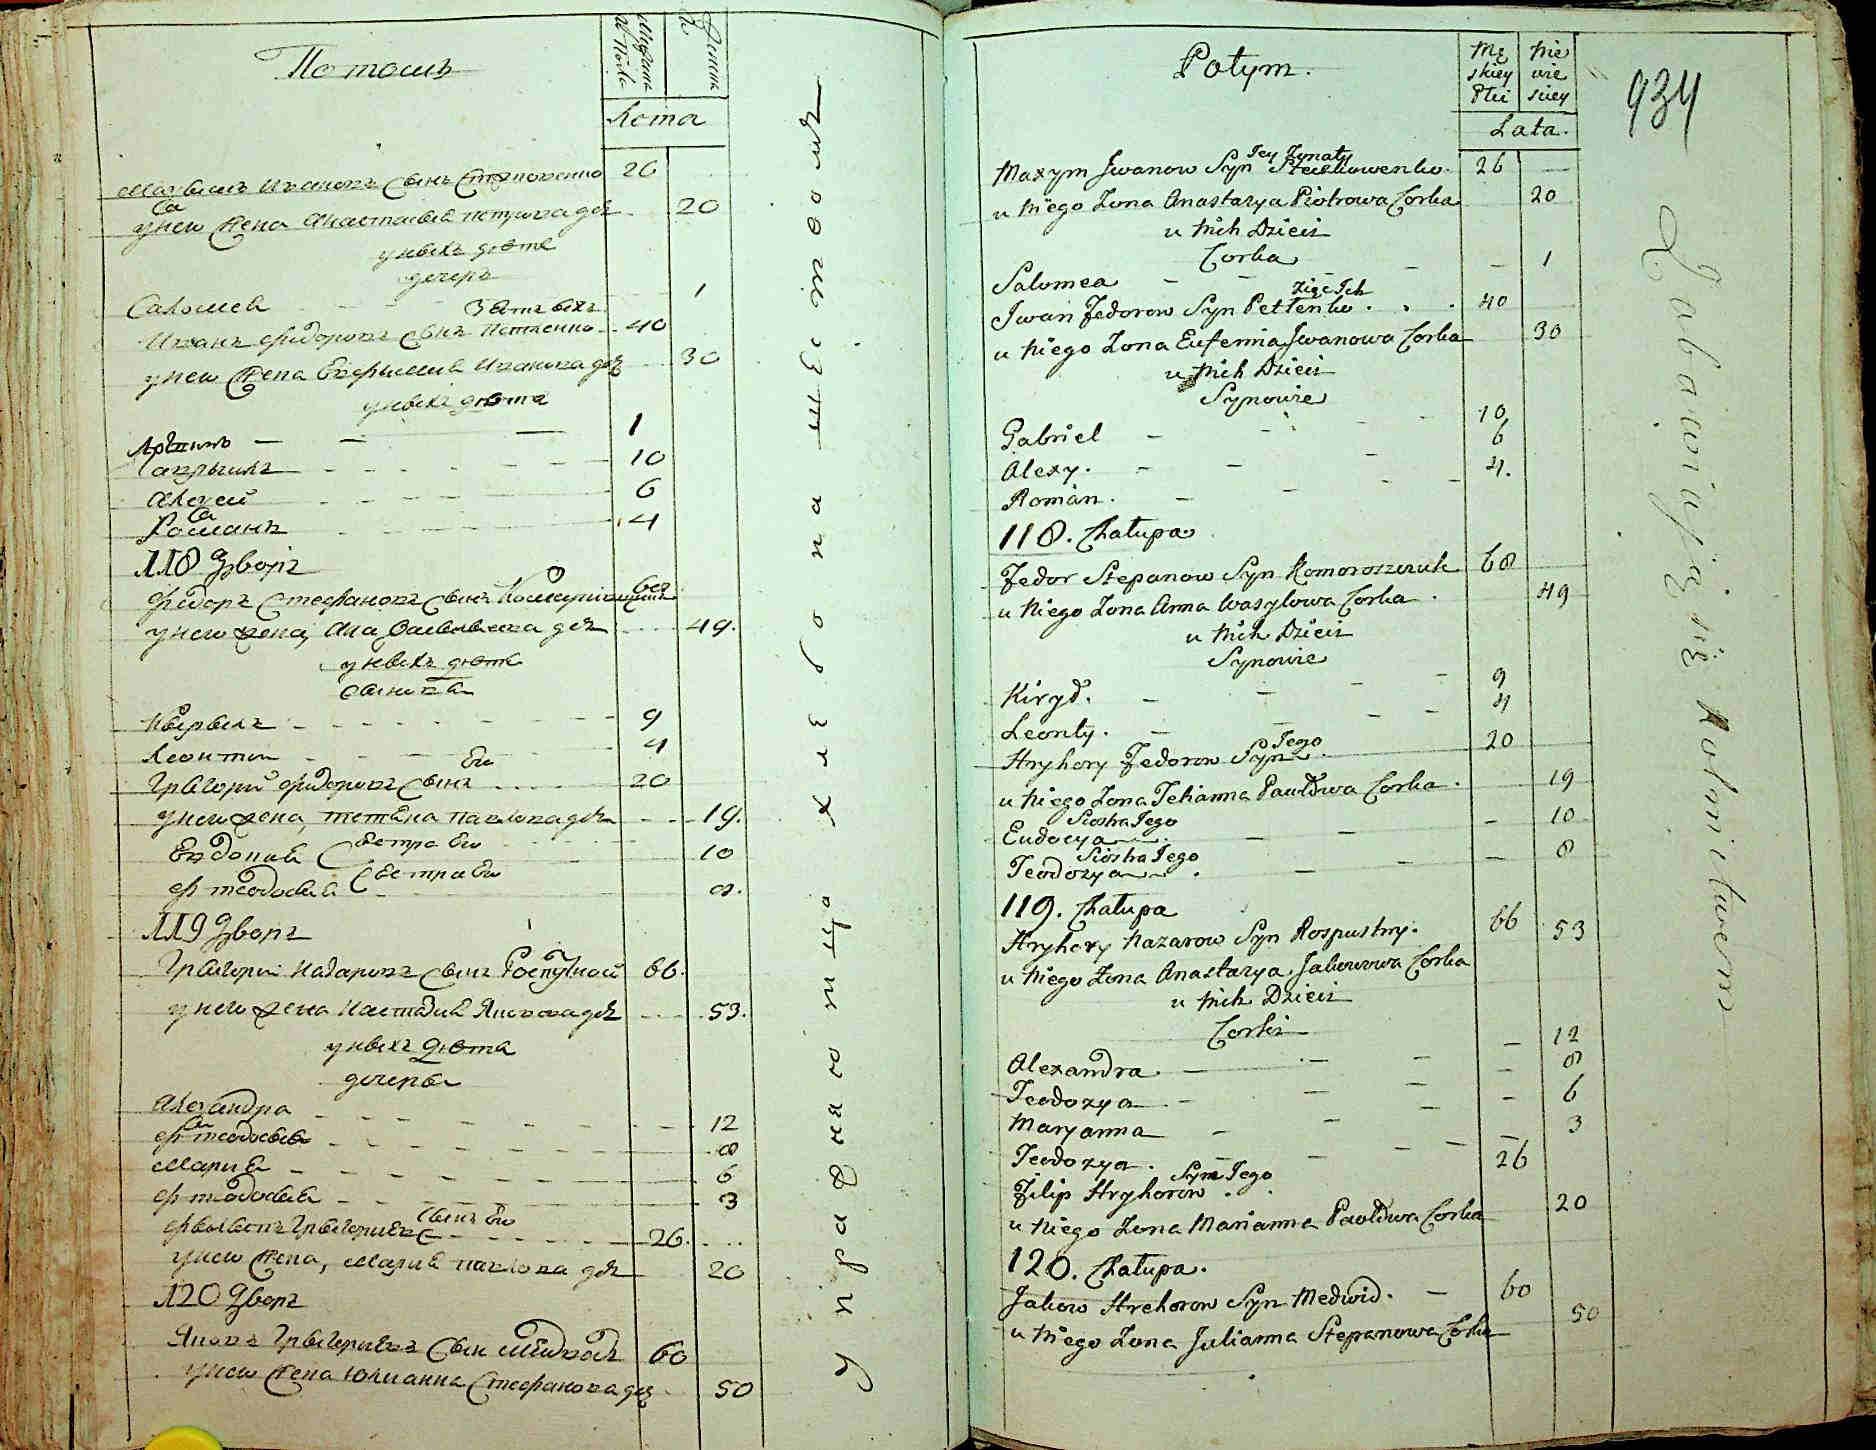 Потомъ
Лета
Максимъ Ивановъ сынъ 26
у него жена Анастасия Петрова дочь 20
у нихъ дети
дочеръ
Саломея 1
Зять ихъ
Иванъ Федоровъ сынъ Петленко 40
у него жена Евфимия Иванова дочь 30
у нихъ дети
1
Гавриилъ 10
Алексей 6
Романъ 4
118 Дворъ
Федоръ Стефановъ сынъ 68
у него жена Анна Василева дочь 49.
у нихъ дети
сыновя
Кирилъ 9
Леонтии 4
Григорий Федоровъ сынъ Его 20
у него жена, Тетяна Павлова дочь 19.
Евдокия Сестра Его 10
Феодосия Сестра Его 8.
119 Дворъ
Григорий Назаровъ сынъ Роспутной 66.
у него жена Настасия Якова дочь 53.
у нихъ дета
дочеры
Александра 12
Феодосия 8
Мария 6
Феодосия 3
Филипъ Григориевъ сынъ Его 26.
у него жена, Мария Павлова дочь 20
120 Дворъ
Яковъ Григориевъ сын Медведь 60
у него жена Юлианна Стефанова дочь 50
упражняются хлебопашеством
Potym.
Mę skiey Płci
Nie wie sciey
Lata.
934
Maxym Jwanow Syn 26
u niego Zona Anastazya Piotrowa Corka 20
u nich Dzieci
Corka
Salomea 1
Zięc Ich
Jwan Fedorow Syn Petlenko 40
u niego Zona Eufemia Jwanowa Corka 30
u nich Dzieci
Synowie
Gabriel 10
Alexy. 6
Roman. 4.
118. Chałupa
Fedor Stepanow Syn Komoroszczuk 68
u niego Zona Anna Wasylowa Corka 49
u nich Dzieci
Synowie
Kirył. 9
Leonty. 4
Hryhory Fedorow Syn Jego 20
u niego Zona Tetianna Pawłowa Corka 19
Eudocya Siostra Jego 10
Teodozya Siostra Jego 8
119. Chałupa
Hryhory Nazarow Syn Rospustny. 66
u niego Zona Anastazya Jakowowa Corka 53
u nich Dzieci
Corki
Alexandra 12
Teodozya 8
Maryanna 6
Teodozya. 3
Filip Hryhorow Syn Jego 26
u niego Zona Marianna Pawłowa Corka 20
120. Chałupa.
Jakow Hrehorow Syn Medwid. 60
u niego Zona Julianna Stepanowa Corka 50
Zabawiają się Rolnictwem